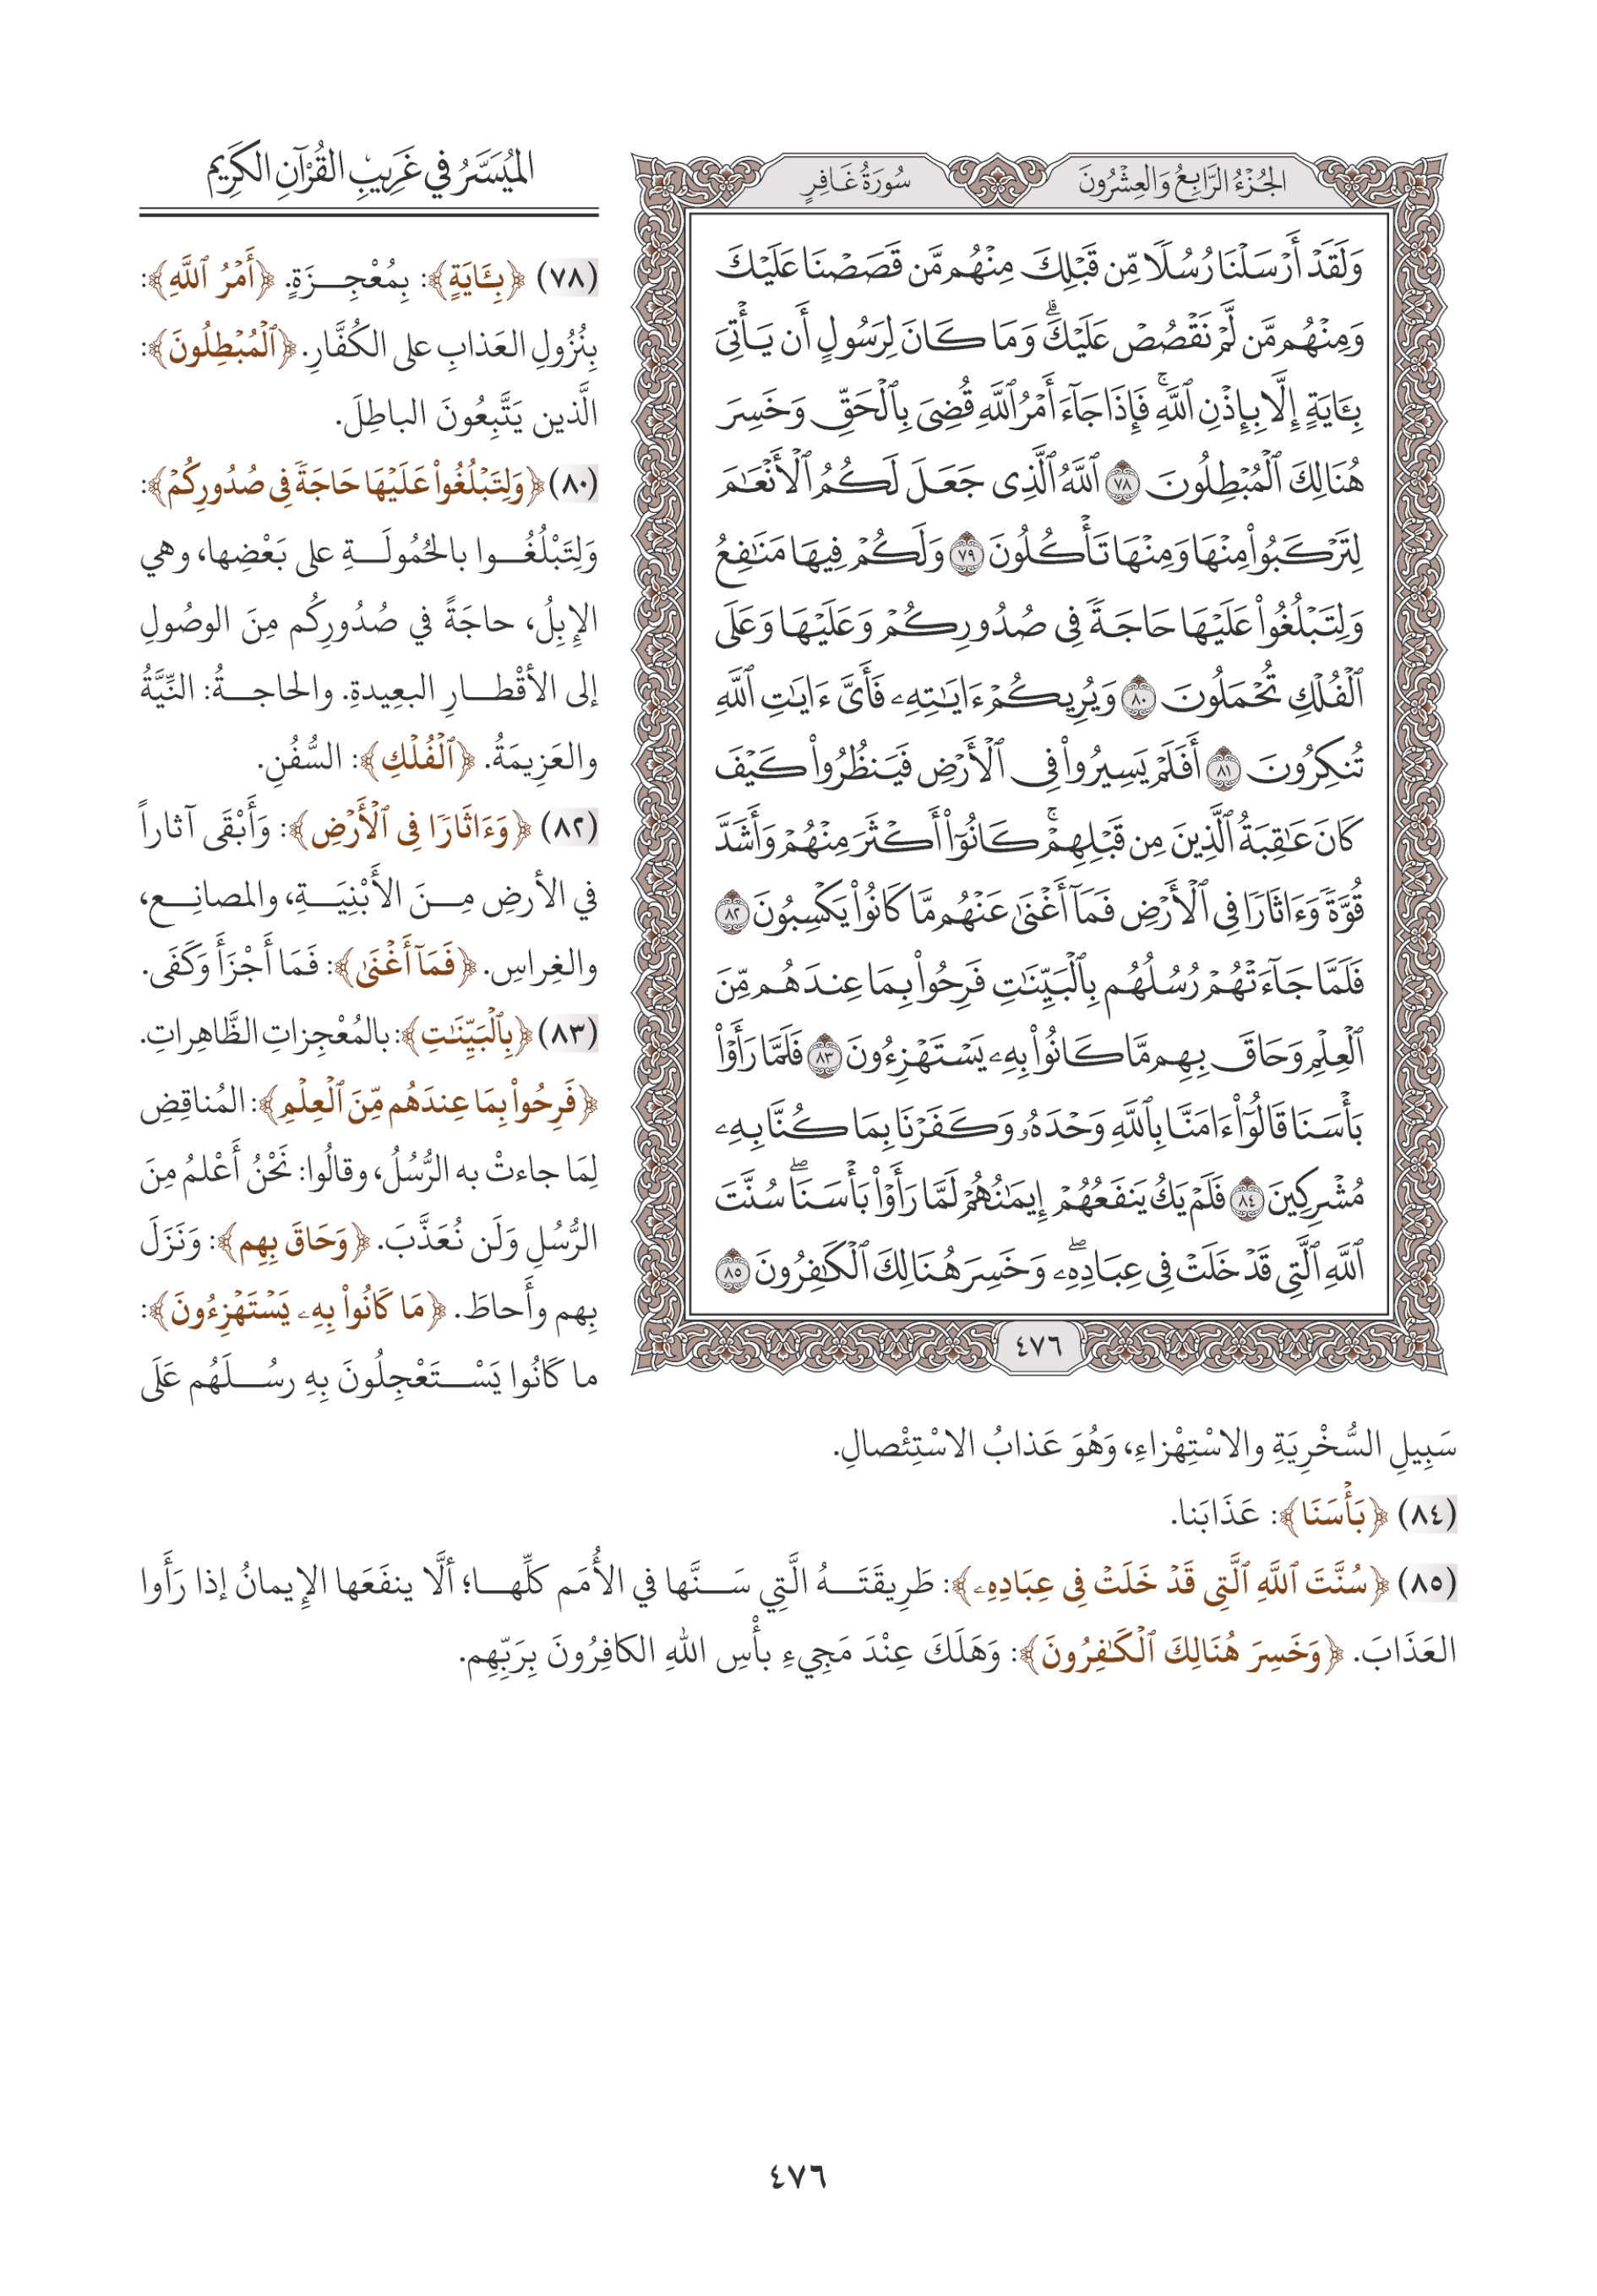 الجُزْءُ الرَّابِعُ وَالعِشْرُونَ
سُورَةُ غَافِرٍ
وَلَقَدْ أَرْسَلْنَا رُسُلًا مِّن قَبْلِكَ مِنْهُم مَّن قَصَصْنَا عَلَيْكَ
وَمِنْهُم مَّن لَّمْ نَقْصُصْ عَلَيْكَ ۗ وَمَا كَانَ لِرَسُولٍ أَن يَأْتِىَ
بِـَٔايَةٍ إِلَّا بِإِذْنِ ٱللَّهِ ۚ فَإِذَا جَآءَ أَمْرُ ٱللَّهِ قُضِىَ بِٱلْحَقِّ وَخَسِرَ
هُنَالِكَ ٱلْمُبْطِلُونَ ٧٨ ٱللَّهُ ٱلَّذِى جَعَلَ لَكُمُ ٱلْأَنْعَٰمَ
لِتَرْكَبُوا۟ مِنْهَا وَمِنْهَا تَأْكُلُونَ ٧٩ وَلَكُمْ فِيهَا مَنَٰفِعُ
وَلِتَبْلُغُوا۟ عَلَيْهَا حَاجَةً فِى صُدُورِكُمْ وَعَلَيْهَا وَعَلَى
ٱلْفُلْكِ تُحْمَلُونَ ٨٠ وَيُرِيكُمْ ءَايَٰتِهِۦ فَأَىَّ ءَايَٰتِ ٱللَّهِ
تُنكِرُونَ ٨١ أَفَلَمْ يَسِيرُوا۟ فِى ٱلْأَرْضِ فَيَنظُرُوا۟ كَيْفَ
كَانَ عَٰقِبَةُ ٱلَّذِينَ مِن قَبْلِهِمْ ۚ كَانُوٓا۟ أَكْثَرَ مِنْهُمْ وَأَشَدَّ
قُوَّةً وَءَاثَارًا فِى ٱلْأَرْضِ فَمَآ أَغْنَىٰ عَنْهُم مَّا كَانُوا۟ يَكْسِبُونَ ٨٢
فَلَمَّا جَآءَتْهُمْ رُسُلُهُم بِٱلْبَيِّنَٰتِ فَرِحُوا۟ بِمَا عِندَهُم مِّنَ
ٱلْعِلْمِ وَحَاقَ بِهِم مَّا كَانُوا۟ بِهِۦ يَسْتَهْزِءُونَ ٨٣ فَلَمَّا رَأَوْا۟
بَأْسَنَا قَالُوٓا۟ ءَامَنَّا بِٱللَّهِ وَحْدَهُۥ وَكَفَرْنَا بِمَا كُنَّا بِهِۦ
مُشْرِكِينَ ٨٤ فَلَمْ يَكُ يَنفَعُهُمْ إِيمَٰنُهُمْ لَمَّا رَأَوْا۟ بَأْسَنَا ۖ سُنَّتَ
ٱللَّهِ ٱلَّتِى قَدْ خَلَتْ فِى عِبَادِهِۦ ۖ وَخَسِرَ هُنَالِكَ ٱلْكَٰفِرُونَ ٨٥
٤٧٦
المُيَسَّرُ في غَرِيبِ القُرْآنِ الكَرِيم
(٧٨) ﴿بِـَٔايَةٍ﴾: بِمُعْجِـزَةٍ. ﴿أَمْرُ ٱللَّهِ﴾:
بِنُزُولِ العَذابِ على الكُفَّارِ. ﴿ٱلْمُبْطِلُونَ﴾:
الَّذين يَتَّبِعُونَ الباطِلَ.
(٨٠) ﴿وَلِتَبْلُغُوا۟ عَلَيْهَا حَاجَةً فِى صُدُورِكُمْ﴾:
وَلِتَبْلُغُـوا بالحُمُولَـةِ على بَعْضِها، وهي
الإِبِلُ، حاجَةً في صُدُورِكُم مِنَ الوصُولِ
إلى الأقْطـارِ البعِيدةِ. والحاجـةُ: النِّيَّةُ
والعَزِيمَةُ. ﴿ٱلْفُلْكِ﴾: السُّفُنِ.
(٨٢) ﴿وَءَاثَارًا فِى ٱلْأَرْضِ﴾: وَأَبْقَى آثاراً
في الأرضِ مِـنَ الأَبْنِيَـةِ، والمصانِـع،
والغِراسِ. ﴿فَمَآ أَغْنَىٰ﴾: فَمَا أَجْزَأَ وَكَفَى.
(٨٣) ﴿بِٱلْبَيِّنَٰتِ﴾: بالمُعْجِزاتِ الظَّاهِراتِ.
﴿فَرِحُوا۟ بِمَا عِندَهُم مِّنَ ٱلْعِلْمِ﴾: المُناقِضِ
لِمَا جاءتْ به الرُّسُلُ، وقالُوا: نَحْنُ أَعْلمُ مِنَ
الرُّسُلِ وَلَن نُعَذَّبَ. ﴿وَحَاقَ بِهِم﴾: وَنَزَلَ
بِهم وأَحاطَ. ﴿مَا كَانُوا۟ بِهِۦ يَسْتَهْزِءُونَ﴾:
ما كَانُوا يَسْـتَعْجِلُونَ بِهِ رسُـلَهُم عَلَى
سَبِيلِ السُّخْرِيَةِ والاسْتِهْزاءِ، وَهُوَ عَذابُ الاسْتِئْصالِ.
(٨٤) ﴿بَأْسَنَا﴾: عَذَابَنا.
(٨٥) ﴿سُنَّتَ ٱللَّهِ ٱلَّتِى قَدْ خَلَتْ فِى عِبَادِهِۦ﴾: طَرِيقَتَـهُ الَّتِي سَـنَّها في الأُمَم كلِّهـا؛ ألَّا ينفَعَها الإِيمانُ إذا رَأَوا
العَذَابَ. ﴿وَخَسِرَ هُنَالِكَ ٱلْكَٰفِرُونَ﴾: وَهَلَكَ عِنْدَ مَجِيءِ بأْسِ اللهِ الكافِرُونَ بِرَبِّهِم.
٤٧٦